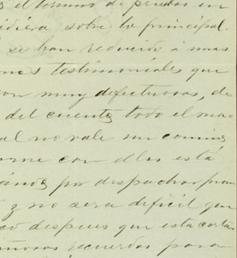 s el termino de pruebas en
sobre lo principal.
se han reducido á unas
nes testimoniales que
son muy defectuosas, de
del cuento, todo el ma
al no vale un comino
orme con ellas está
por despachar pron
y no sera dificil que
co despues que esta carta
recuerdos para